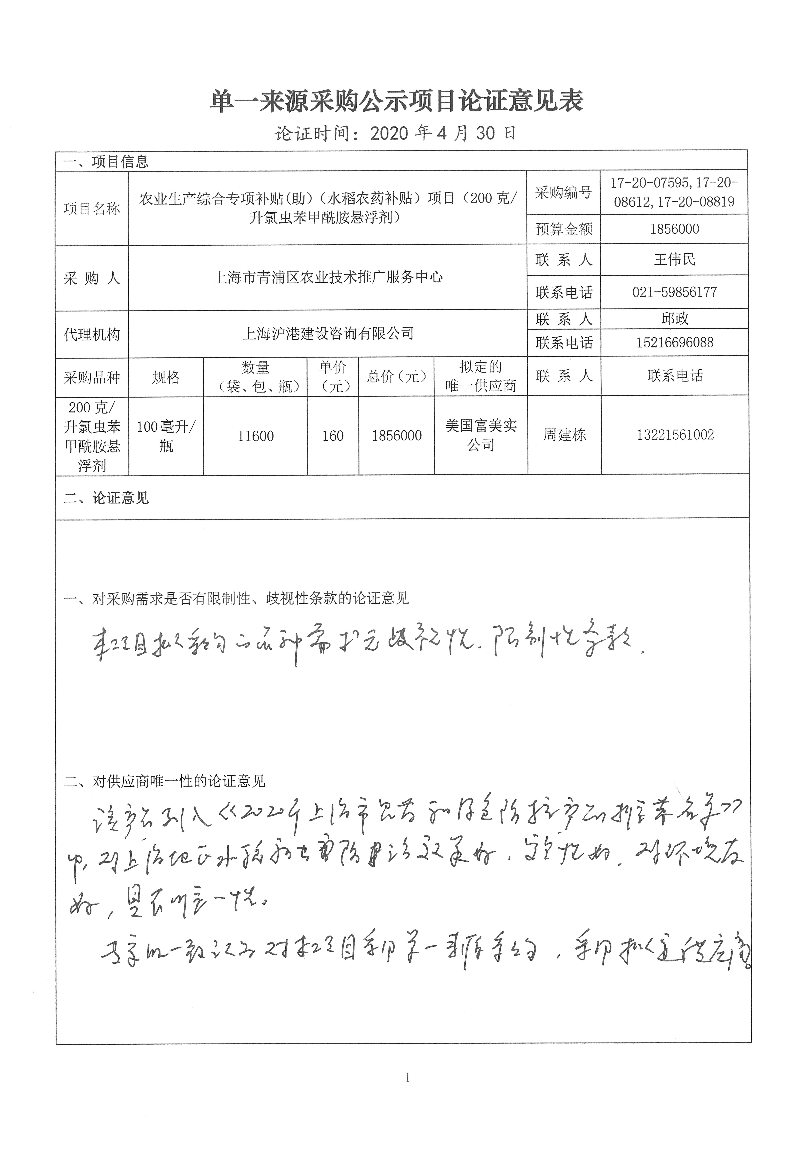 单一来源采购公示项目论证意见表
论证时间：2020 年 4 月 30 日
一、项目信息
项目名称
农业生产综合专项补贴(助)（水稻农药补贴）项目（200 克/
升氯虫苯甲酰胺悬浮剂）
采购编号
17-20-07595,17-20-
08612,17-20-08819
预算金额
1856000
采 购 人
上海市青浦区农业技术推广服务中心
联 系 人
王伟民
联系电话
021-59856177
代理机构
上海沪港建设咨询有限公司
联 系 人
邱政
联系电话
15216696088
采购品种
规格
数量
（袋、包、瓶）
单价
（元）
总价（元）
拟定的
唯一供应商
联 系 人
联系电话
200 克/
升氯虫苯
甲酰胺悬
浮剂
100 毫升/
瓶
11600
160
1856000
美国富美实
公司
周建栋
13221561002
二、论证意见
一、对采购需求是否有限制性、歧视性条款的论证意见
本项目拟采购的品种需求无歧视性、限制性条款.
二、对供应商唯一性的论证意见
该产品列入《2020年上海市农药和绿色防控产品推荐名单》
中，对上海地区水稻和害防治效果好，安全性好，对环境友
好，具有唯一性。
专家组一致认为对本项目采用单一来源采购，采用拟定供应商。
1